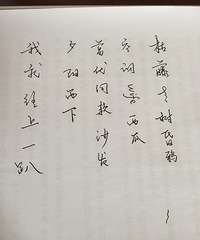 枯藤老树昏鸦
空调西瓜
葛优同款沙发
夕阳西下
我就往上一趴